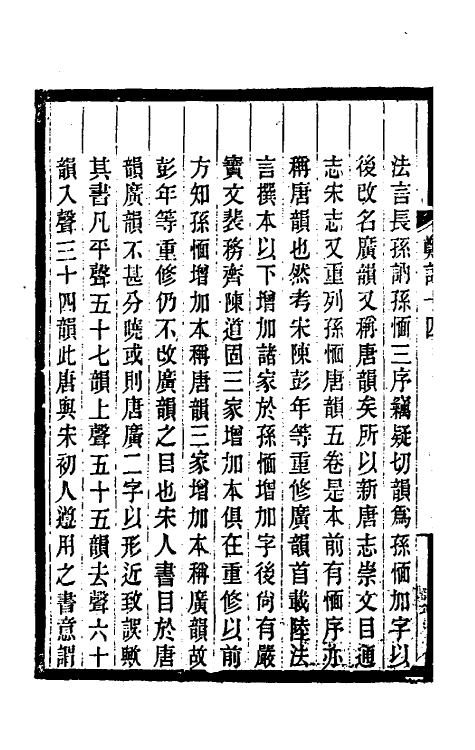 鄭記十四
法言長孫訥孫愐三序竊疑切韻爲孫愐加字以
後改名廣韻又稱唐韻矣所以新唐志崇文目通
志宋志又重列孫愐唐韻五卷是本前有愐序亦
稱唐韻也然考宋陳彭年等重修廣韻首載陸法
言撰本以下增加諸家於孫愐增加字後尙有嚴
寶文裴務齊陳道固三家增加本俱在重修以前
方知孫愐增加本稱唐韻三家增加本稱廣韻故
彭年等重修仍不改廣韻之目也宋人書目於唐
韻廣韻不甚分曉或則唐廣二字以形近致誤歟
其書凡平聲五十七韻上聲五十五韻去聲六十
韻入聲三十四韻此唐與宋初人遵用之書意謂